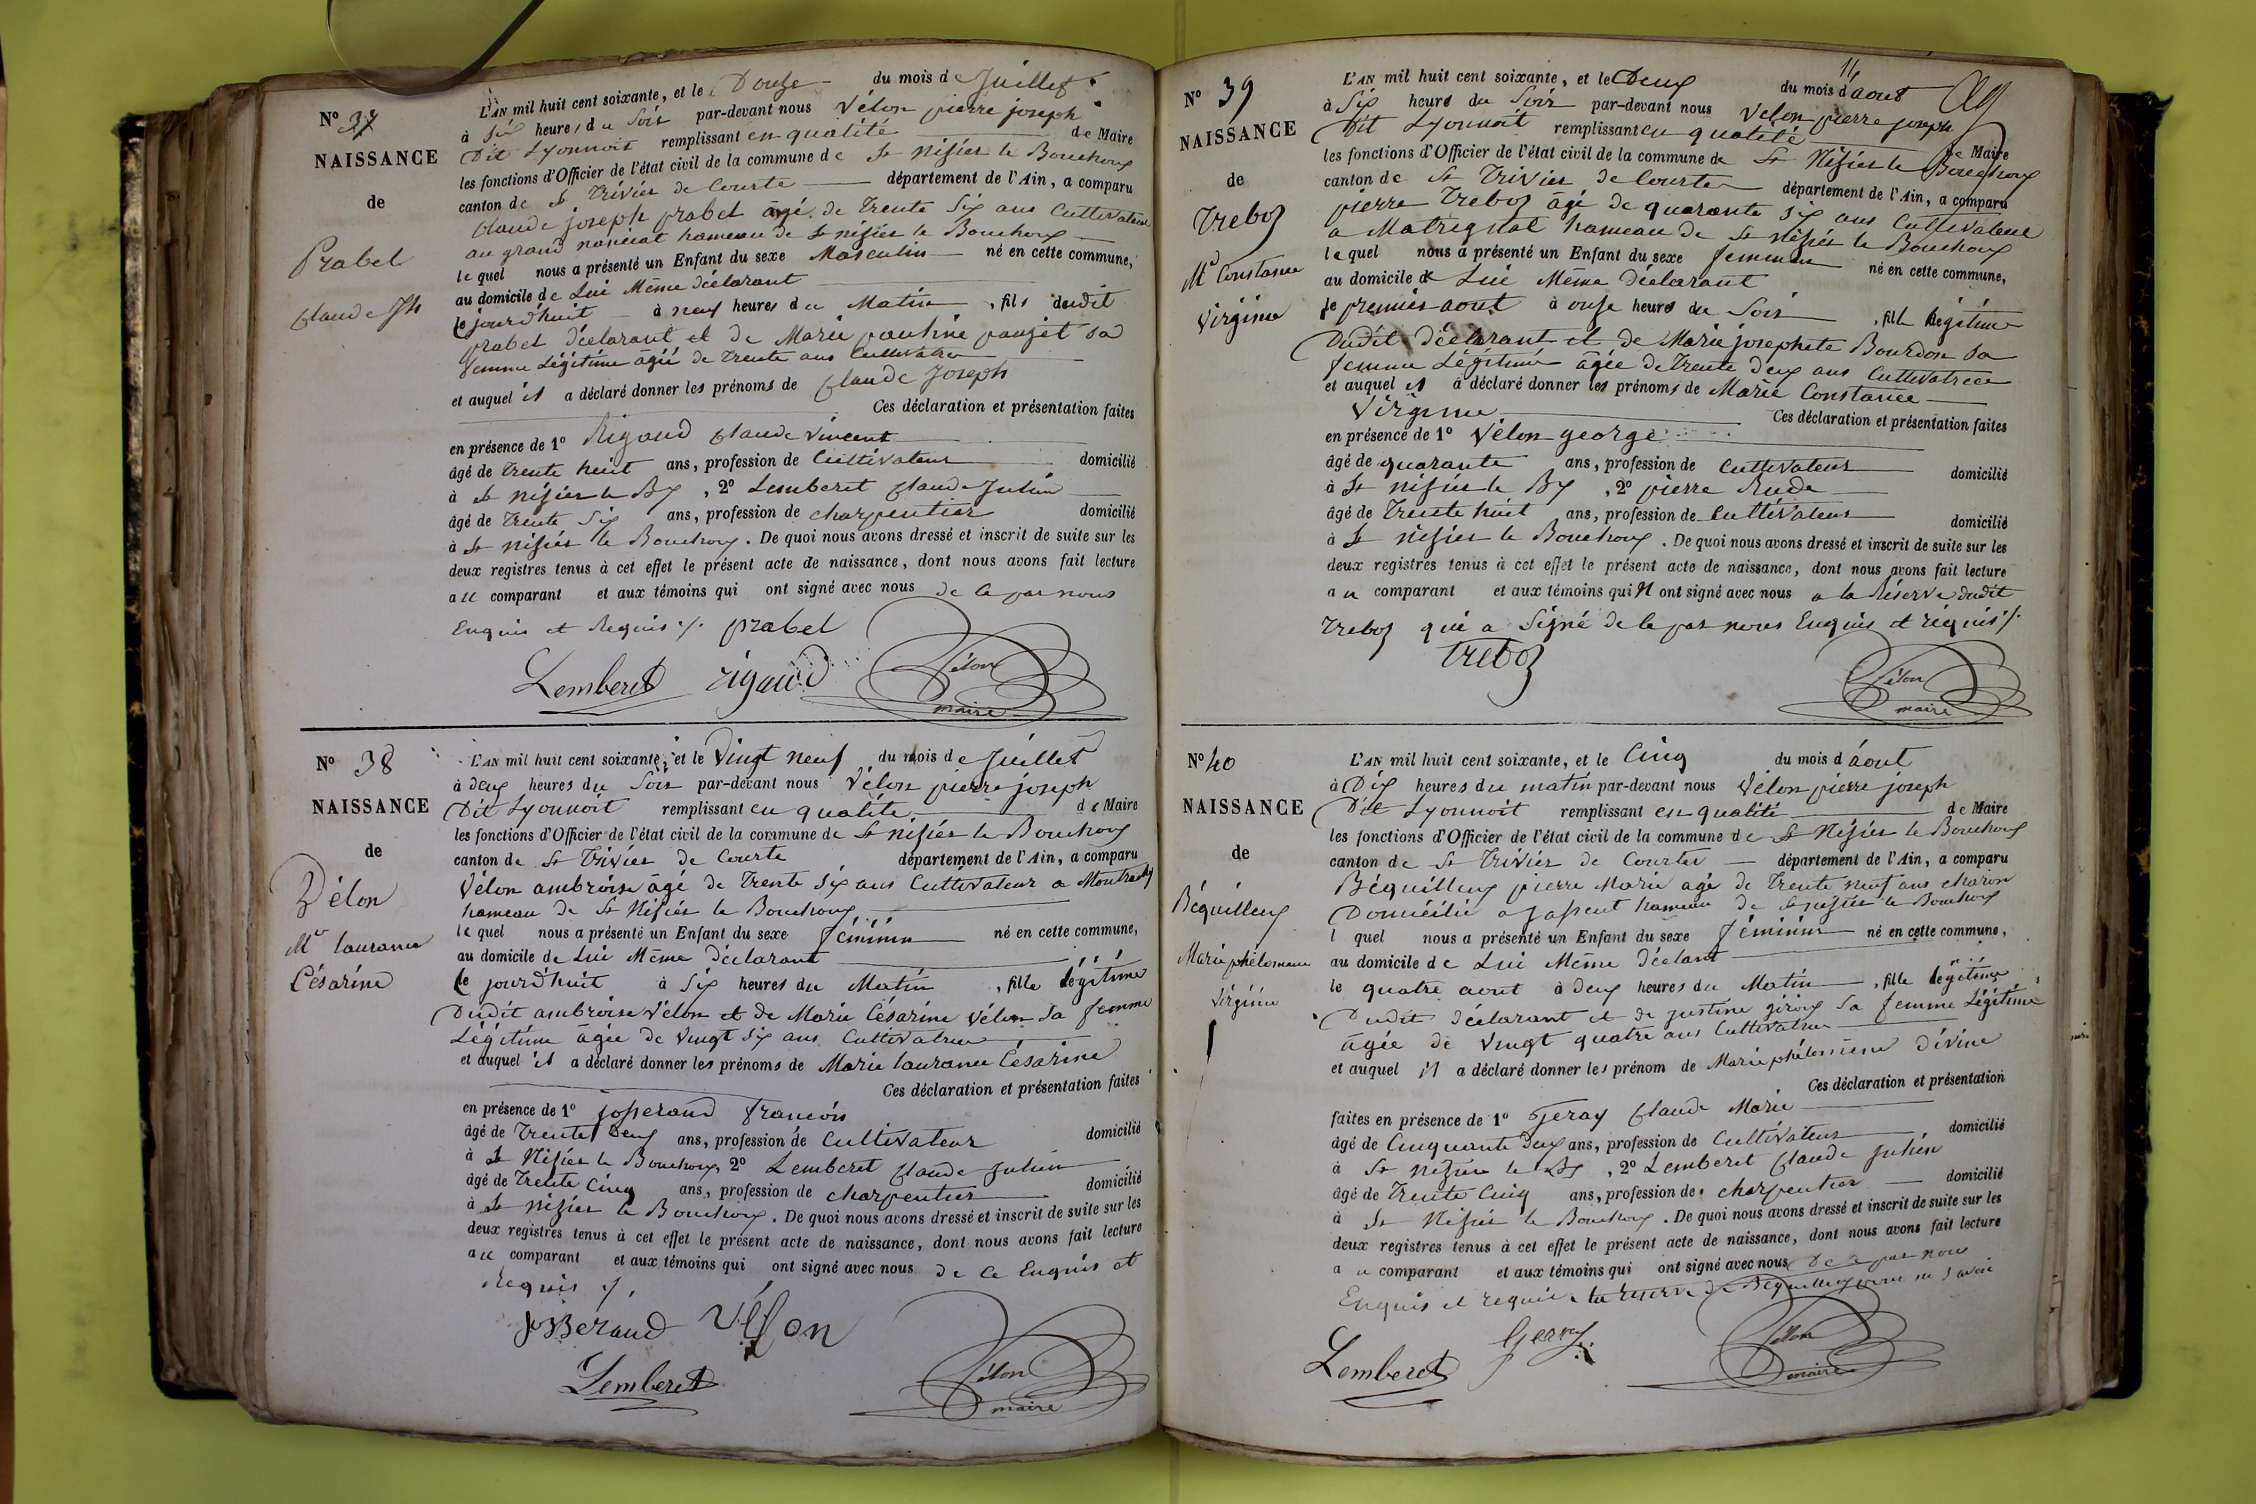 N° 37
NAISSANCE
de
Prabel
Claude Jh
L'AN mil huit cent soixante, et le Douze du mois de Juillet
à six heures du soir par-devant nous Vélon pierre joseph
Dit Lyonnoit remplissant en qualité de Maire
les fonctions d'Officier de l'état civil de la commune de St Nisier le Bouchoux
canton de St Trivier de Courte département de l'Ain, a comparu
Claude joseph prabel âgé de Trente Six ans Cultivateur
au grand hameau de St nisier le Bouchoux
le quel nous a présenté un Enfant du sexe Masculin né en cette commune,
au domicile de Lui Même déclarant
le jourd'huit à neuf heures du Matin, fils dudit
prabel déclarant et de Marie pauline sa
femme Légitime âgée de Trente ans Cultivatrice
et auquel il a déclaré donner les prénoms de Claude Joseph
Ces déclaration et présentation faites
en présence de 1° Rigaud Claude Vincent
âgé de Trente huit ans, profession de Cultivateur domicilié
à St nisier le Bx, 2° Lemberet Claude Julien
âgé de Trente Six ans, profession de charpentier domicilié
à St nisier le Bouchoux. De quoi nous avons dressé et inscrit de suite sur les
deux registres tenus à cet effet le présent acte de naissance, dont nous avons fait lecture
au comparant et aux témoins qui ont signé avec nous de ce par nous
Enquis et Requis ./. prabel
Lemberet rigaud Vélon
maire
N° 38
NAISSANCE
de
Vélon
Mie laurance
Césarine
L'AN mil huit cent soixante, et le Vingt neuf du mois de Juillet
à deux heures du Soir par-devant nous Vélon pierre joseph
Dit Lyonnoit remplissant en qualité de Maire
les fonctions d'Officier de l'état civil de la commune de St nisier le Bouchoux
canton de St Trivier de Courte département de l'Ain, a comparu
Vélon ambroise âgé de Trente Six ans Cultivateur a
hameau de St Nisier le Bouchoux
le quel nous a présenté un Enfant du sexe féminin né en cette commune,
au domicile de Lui Même déclarant
le jourd'huit à Six heures du Matin, fille légitime
Dudit ambroise Vélon et de Marie Césarine Vélon Sa femme
Légitime âgée de Vingt Six ans Cultivatrice
et auquel il a déclaré donner les prénoms de Marie laurance Césarine
Ces déclaration et présentation faites
en présence de 1° josserand francois
âgé de Trente Deux ans, profession de Cultivateur domicilié
à St Nisier le Bouchoux, 2° Lemberet Claude Julien
âgé de Trente Cinq ans, profession de charpentier domicilié
à St nisier le Bouchoux. De quoi nous avons dressé et inscrit de suite sur les
deux registres tenus à cet effet le présent acte de naissance, dont nous avons fait lecture
au comparant et aux témoins qui ont signé avec nous de Ce Enquis et
Requis ./.
josserand Vélon
Lemberet Vélon
maire
N° 39
NAISSANCE
de
Treboz
Mie Constance
Virginie
L'AN mil huit cent soixante, et le Deux du mois d'aout
à Six heures du Soir par-devant nous Vélon pierre joseph
Dit Lyonnoit remplissant en qualité de Maire
les fonctions d'Officier de l'état civil de la commune de St Nisier le Bouchoux
canton de St Trivier de Courtes département de l'Ain, a comparu
pierre Treboz âgé de quarante six ans Cultivateur
a Matrignat hameau de St nisier le Bouchoux
le quel nous a présenté un Enfant du sexe feminin né en cette commune,
au domicile de Lui Même déclarant
le premier aout à onze heures du Soir, fille légitime
Dudit déclarant et de Marie josephete Bourdon Sa
femme Légitime âgée de Trente Deux ans Cultivatrice
et auquel il a déclaré donner les prénoms de Marie Constance
Virginie Ces déclaration et présentation faites
en présence de 1° Vélon george
âgé de quarante ans, profession de Cultivateur domicilié
à St nisier le Bx, 2° pierre Rude
âgé de Trente huit ans, profession de Cultivateur domicilié
à St nisier le Bouchoux. De quoi nous avons dressé et inscrit de suite sur les
deux registres tenus à cet effet le présent acte de naissance, dont nous avons fait lecture
au comparant et aux témoins qui N ont signé avec nous a la Réserve dudit
Treboz qui a Signé de ce par nous Enquis et réquis ./.
treboz Vélon
maire
N° 40
NAISSANCE
de
Béquilleux
Marie phélomene
Virginie
L'AN mil huit cent soixante, et le Cinq du mois d'août
à Dix heures du matin par-devant nous Vélon pierre joseph
Dit Lyonnoit remplissant en qualité de Maire
les fonctions d'Officier de l'état civil de la commune de St Nisier le Bouchoux
canton de St Trivier de Courtes département de l'Ain, a comparu
Béquilleux pierre Marie age de Trente neuf ans charon
Domicilié a hameau de St nisier le Bouchoux
l quel nous a présenté un Enfant du sexe féminin né en cette commune,
au domicile de Lui Même déclarant
le quatre aout à deux heures du Matin, fille légitime
Dudit déclarant et de justine giroux Sa femme Légitime
âgée de Vingt quatre ans Cultivatrice
et auquel il a déclaré donner les prénom de Marie phélomène
Ces déclaration et présentation
faites en présence de 1° Geray Claude Marie
âgé de Cinquante Deux ans, profession de Cultivateur domicilié
à St nizier le Bx, 2° Lemberet Claude Julien
âgé de Trente Cinq ans, profession de charpentier domicilié
à St Nisier le Bouchoux. De quoi nous avons dressé et inscrit de suite sur les
deux registres tenus à cet effet le présent acte de naissance, dont nous avons fait lecture
au comparant et aux témoins qui ont signé avec nous De ce par nous
Enquis et requis a la réserve de Béquilleux
Lemberet Geray Vélon
maire